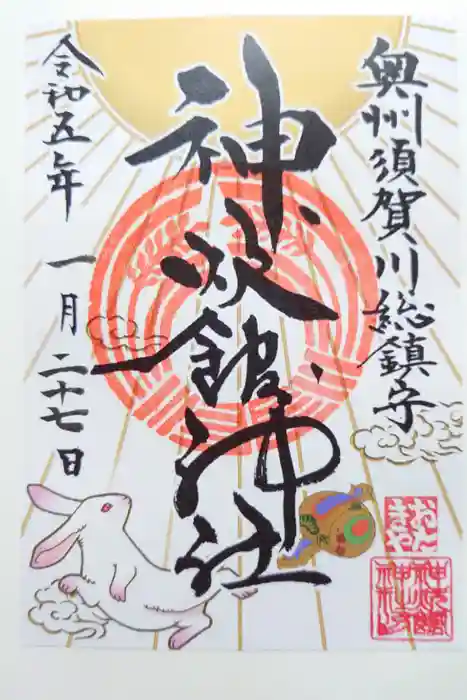 奥州須賀川総鎮守
神炊館神社
令和五年 一月二十七日
おたきや
神炊館神社